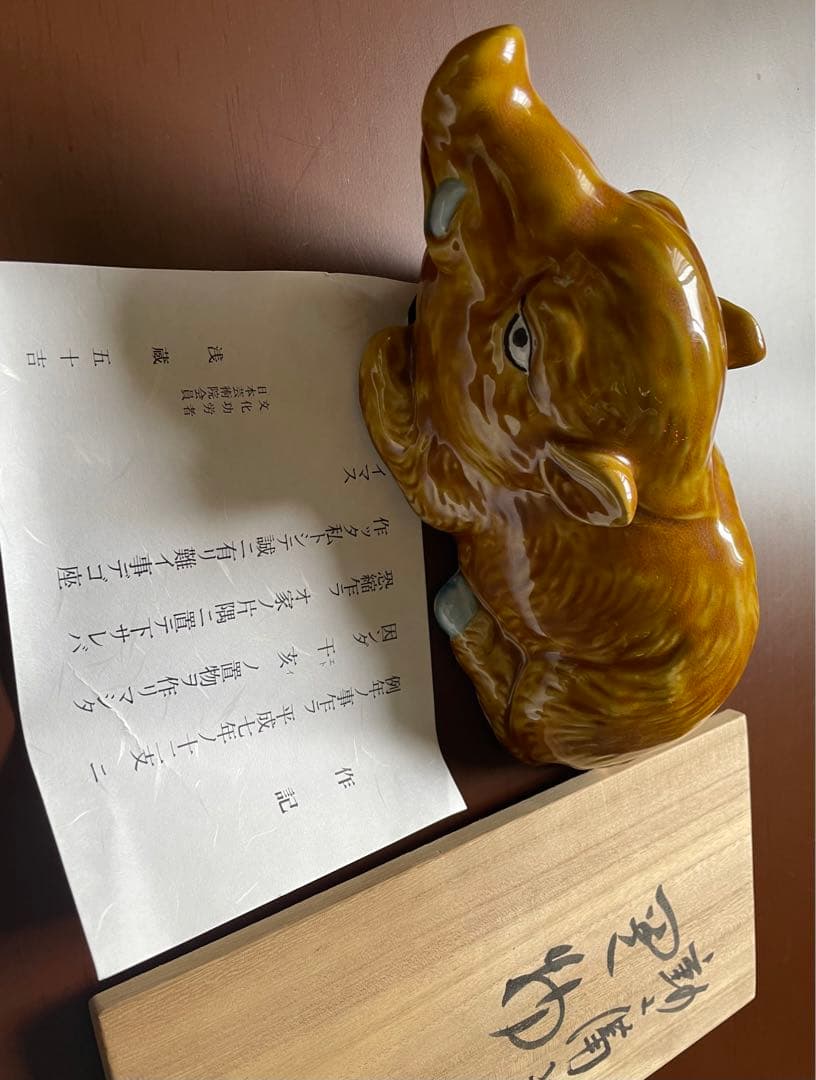 作記
例年ノ事乍ラ平成七年ノ十二支ニ
因ンダ干亥ノ置物ヲ作リマシタ
エト イ
恐縮乍ラオ家ノ片隅ニ置テ下サレバ
作ッタ私トシテ誠ニ有リ難イ事デゴ座
イマス
文化功労者
日本芸術院会員
浅蔵五十吉
置物